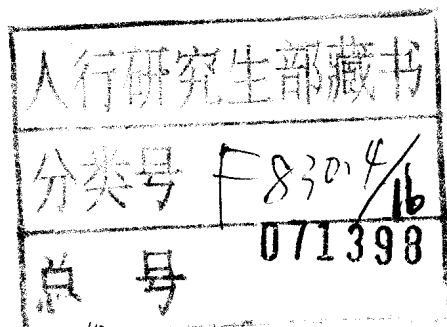 人行研究生部藏书
分类号 F830.4/16
总号 071398